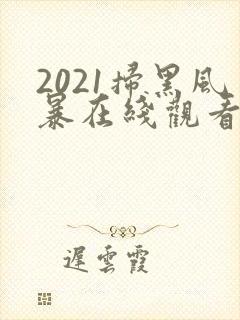 2021掃黑風
暴在綫觀看
遲雲霞